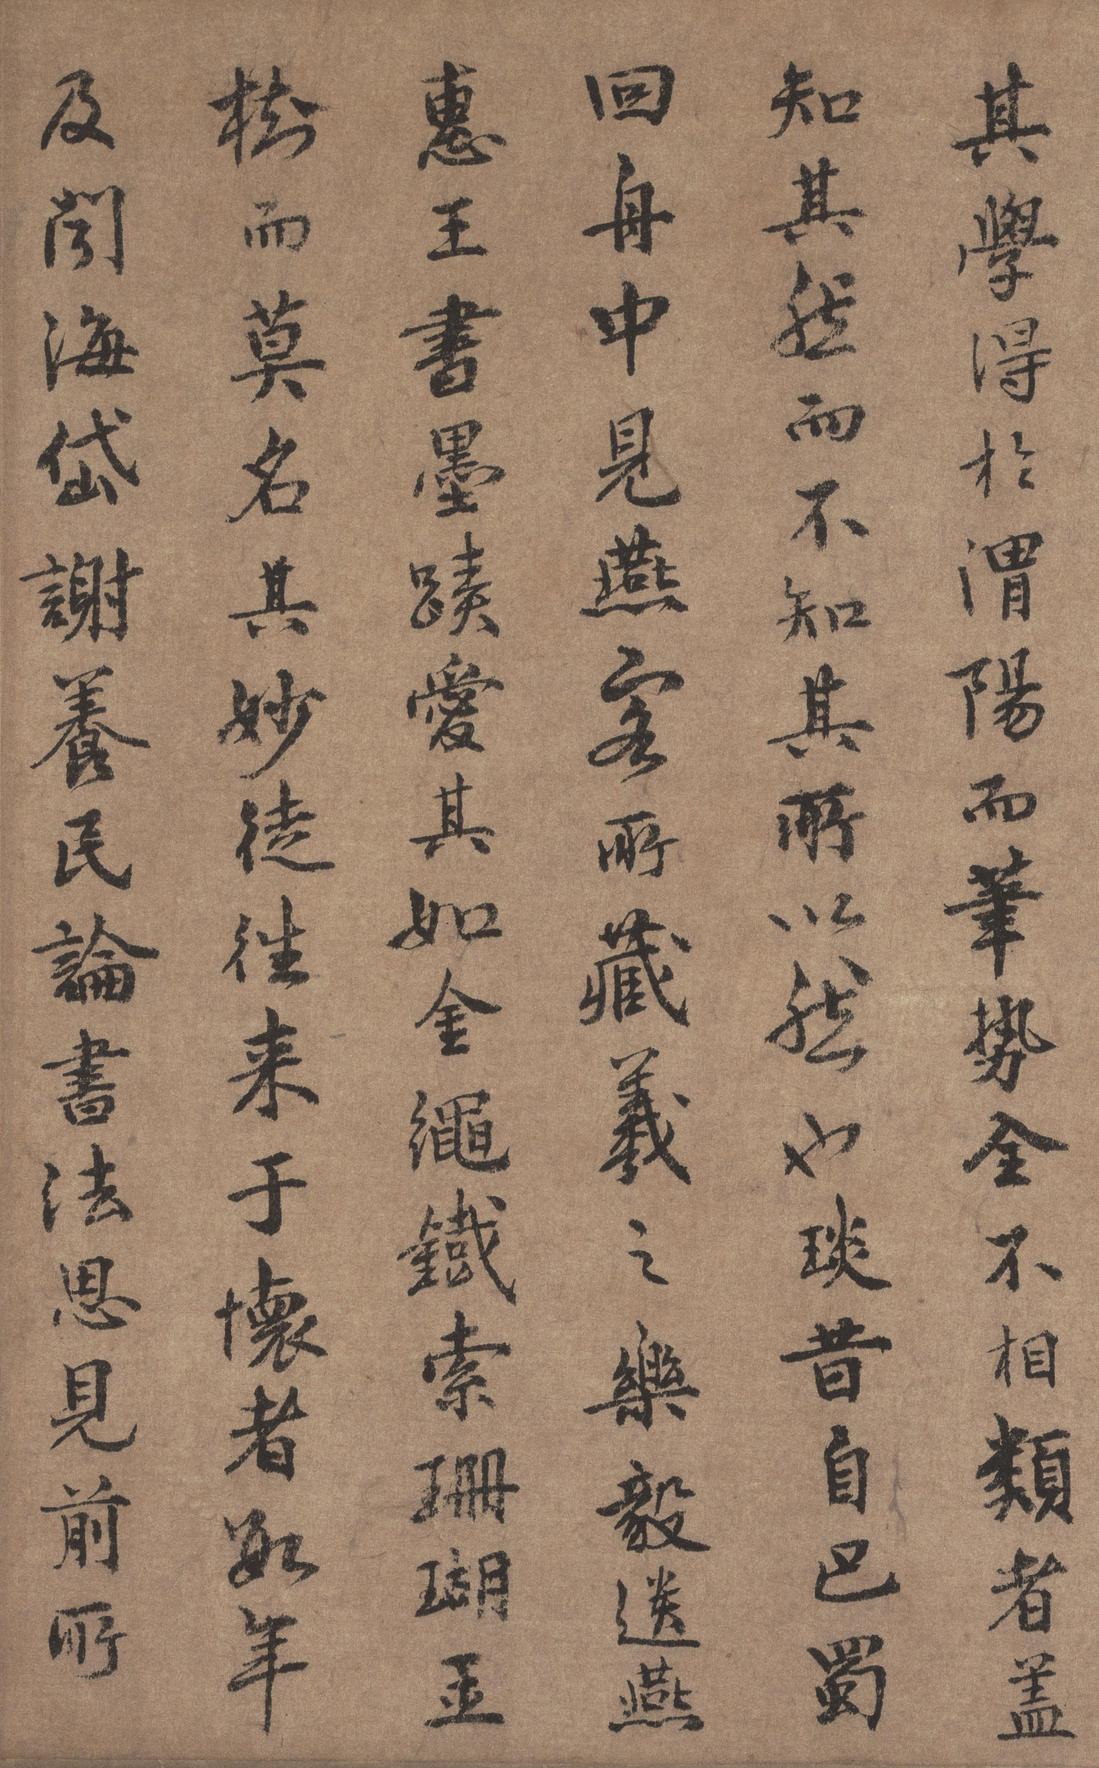 其學得於渭陽而筆勢全不相類者盖
知其然而不知其所以然也琰昔自巴蜀
回舟中見燕客所藏羲之樂毅遺燕
惠王書墨蹟愛其如金繩鐵索珊瑚玉
樹而莫名其妙徒往来于懷者數年
及閱海岱謝養民論書法恩見前所